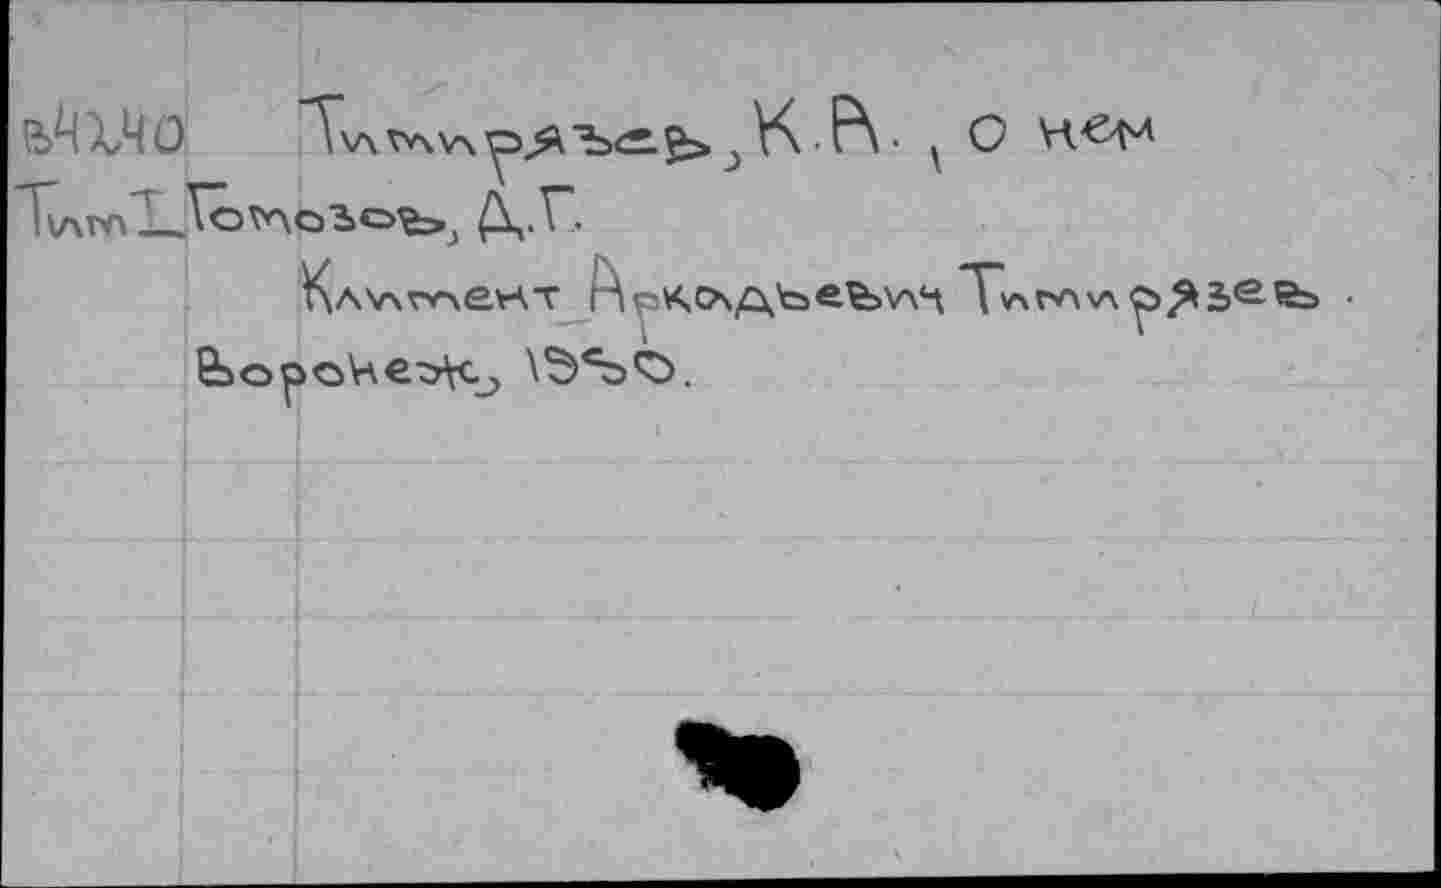 Тимирязев, К.А., о нем
Тим1 Гомозов, Д.Г.
Климент Аркадьевич Тимирязев.
Воронеж, 1950.